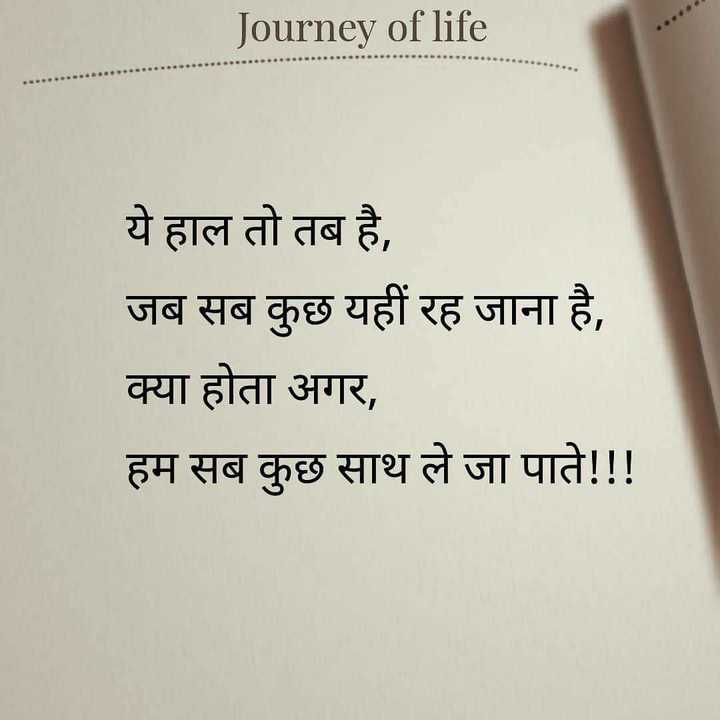 Journey of life
ये हाल तो तब है,
जब सब कुछ यहीं रह जाना है,
क्या होता अगर,
हम सब कुछ साथ ले जा पाते!!!